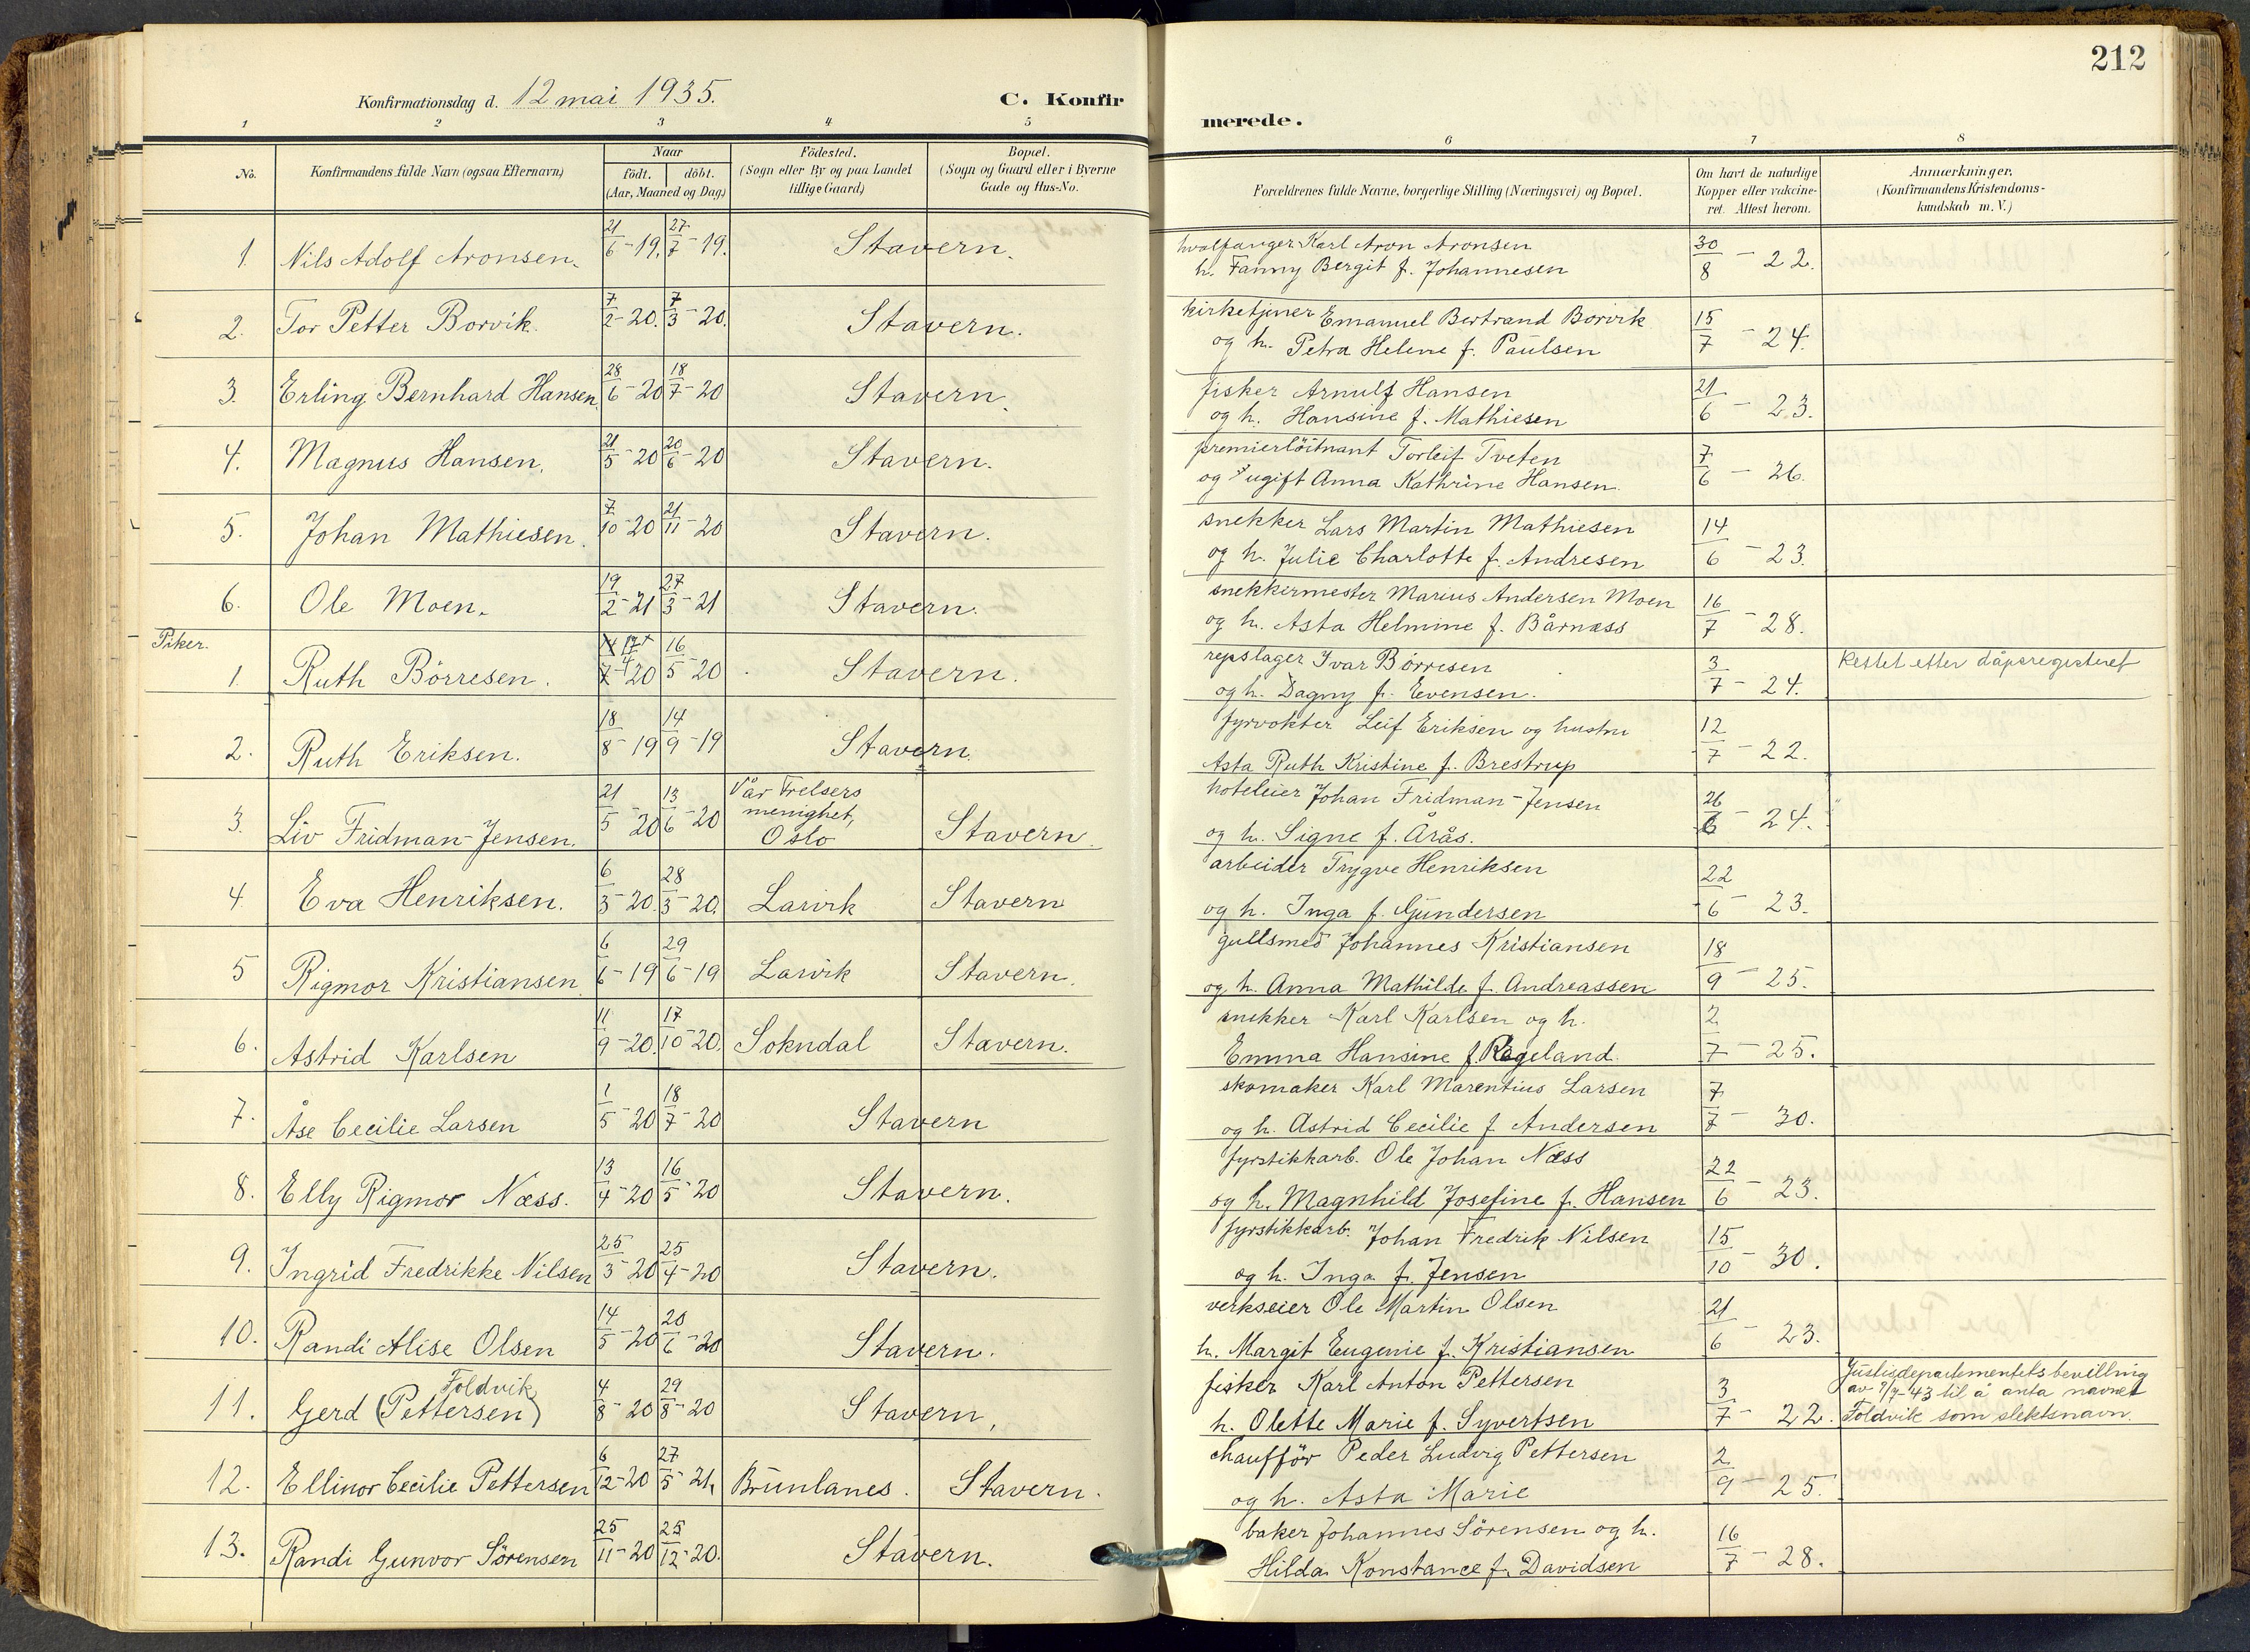 212
Konfirmationsdag d. 12 mai 1935.
C. Konfirmerede.
1 2 3 4 5 6 7 8
No.
Konfirmandens fulde Navn (ogsaa Efternavn)
Naar
født. døbt.
(Aar, Maaned og Dag)
Fødested.
(Sogn eller By og paa Landet
tillige Gaard)
Bopæl.
(Sogn og Gaard eller i Byerne
Gade og Hus-No.
Forældrenes fulde Navne, borgerlige Stilling (Næringsvei) og Bopæl.
Om havt de naturlige
Kopper eller vakcine-
ret. Attest herom.
Anmærkninger.
(Konfirmandens Kristendoms-
kundskab m. V.)
1. Nils Adolf Aronsen. 21/6-19. 27/7-19. Stavern. hvalfanger Karl Aron Aronsen 30/8 - 22.
h. Fanny Bergit f. Johannesen
2. Tor Petter Borvik. 7/2-20. 7/3-20. Stavern. kirketjener Emanuel Bertrand Borvik 15/7 - 24.
og h. Petra Helene f. Paulsen
3. Erling Bernhard Hansen. 28/6-20 18/7-20 Stavern. fisker Arnulf Hansen 21/6 - 23.
og h. Hansine f. Mathiesen
4. Magnus Hansen. 21/5-20 20/6-20 Stavern. premierløitnant Torleif Tveten 7/6 - 26.
og ugift Anna Kathrine Hansen.
5. Johan Mathiesen. 7/10-20 21/11-20 Stavern. snekker Lars Martin Mathiesen 14/6 - 23.
og h. Julie Charlotte f. Andresen
6. Ole Moen. 19/2-21 27/3-21 Stavern. snekkermester Marius Andersen Moen 16/7 - 28.
og h. Asta Helmine f. Bårnæss
Piker.
1. Ruth Börresen. 17/4 20 16/5-20 Stavern. repslager Ivar Børresen 3/7 - 24. Rettet etter dåpsregisteret
og h. Dagny f. Evensen.
2. Ruth Eriksen. 18/8-19 14/9-19 Stavern. fyrvokter Leif Eriksen og hustru 12/7 - 22.
Asta Ruth Kristine f. Brestrup
3. Liv Fridman-Jensen. 21/5-20 13/6-20 Vår Frelsers
menighet,
Oslo Stavern. hoteleier Johan Fridman-Jensen 26/6 - 24.
og h. Signe f. Årås.
4. Eva Henriksen. 6/3-20. 28/3-20. Larvik Stavern arbeider Trygve Henriksen 22/6 - 23.
og h. Inga f. Gundersen
5 Rigmor Kristiansen. 6/6-19 29/6-19 Larvik Stavern. gullsmed Johannes Kristiansen 18/9 - 25.
og h. Anna Mathilde f. Andreassen
6. Astrid Karlsen 11/9-20. 17/10-20. Sokndal Stavern. snekker Karl Karlsen og h. 2/7 - 25.
Emma Hansine f. Rageland.
7. Åse Cecilie Larsen 1/5-20 18/7-20 Stavern skomaker Karl Marentius Larsen 7/7 - 30.
og h. Astrid Cecilie f. Andersen
8. Elly Rigmor Næss. 13/4-20 16/5-20 Stavern. fyrstikkarb. Ole Johan Næss 22/6 - 23.
og h. Magnhild Josefine f. Hansen
9. Ingrid Fredrikke Nilsen 25/3-20 25/4-20 Stavern. fyrstikkarb. Johan Fredrik Nilsen 15/10 - 30.
og h. Inga f. Jensen
10. Randi Alise Olsen 14/5-20 20/6-20 Stavern. verkseier Ole Martin Olsen 21/6 - 23.
h. Margit Eugenie f. Kristiansen
Foldvik
11. Gerd (Pettersen) 4/8-20 29/8-20 Stavern, fisker Karl Anton Pettersen 3/7 - 22. Justisdepartementets bevilling
av 9/7-43 til å anta navnet
h. Olette Marie f. Syvertsen Foldvik som slektsnavn.
12. Ellinor Cecilie Pettersen 6/12-20 27/5-21. Brunlanes. Stavern. chauffør Peder Ludvig Pettersen 2/9 - 25.
og h. Asta Marie
13. Randi Gunvor Sörensen 25/11-20 25/12-20. Stavern. baker Johannes Sörensen og h. 16/7 - 28.
Hilda Konstance f. Davidsen